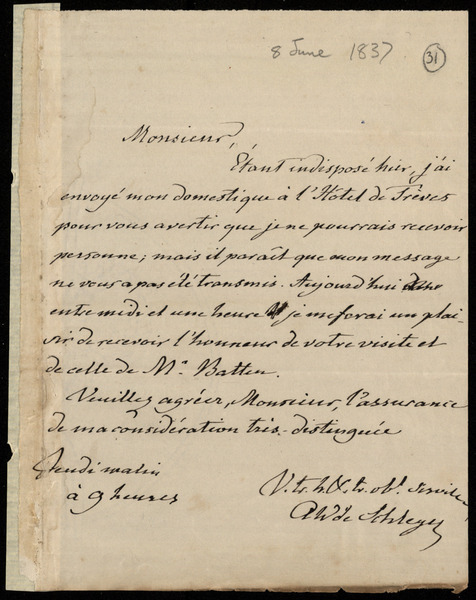 8 June 1837 31
Monsieur,
Étant indisposé hier, j'ai
envoyé mon domestique à l'Hôtel de Trèves
pour vous avertir que je ne pourrais recevoir
personne; mais il paraît que mon message
ne vous a pas été transmis. Aujourd'hui
entre midi et une heure je me ferai un plai-
sir de recevoir l'honneur de votre visite et
de celle de Mr. Batten.
Veuillez agréer, Monsieur, l'assurance
de ma considération très-distinguée
Jeudi matin
à 9 heures
V. tr. h. & tr. obt. serviteur
AW de Schlegel